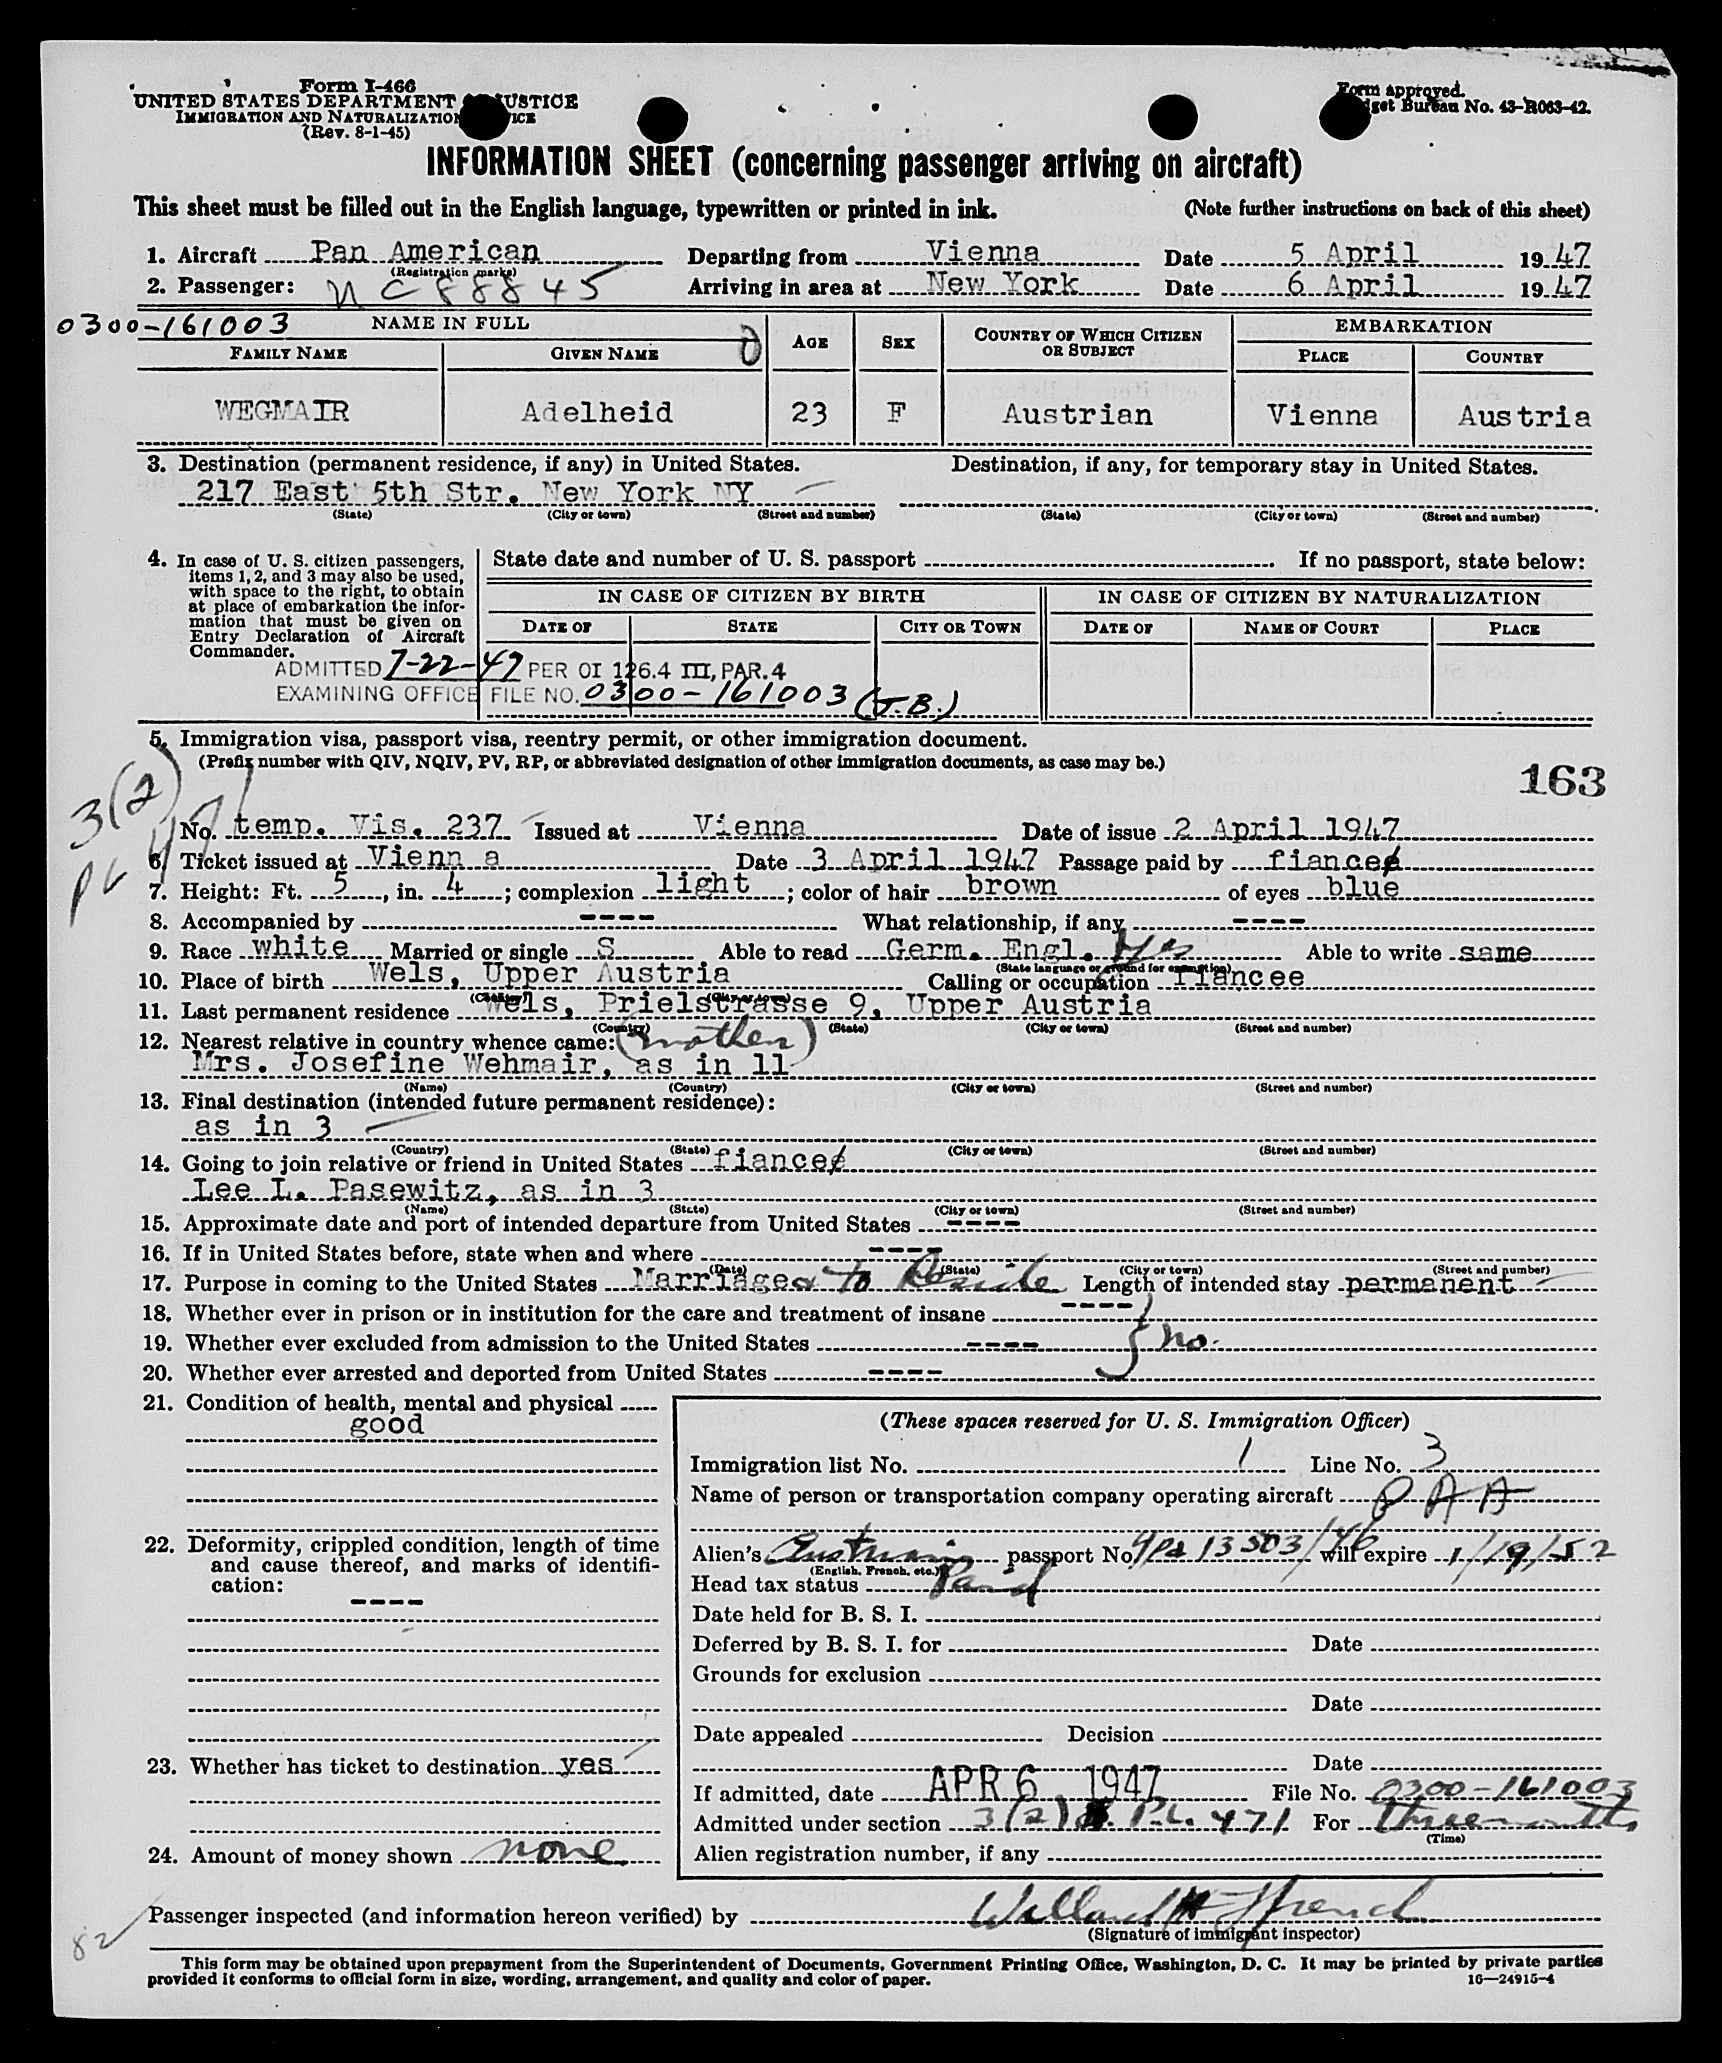 Form I-466
UNITED STATES DEPARTMENT JUSTICE
IMMIGRATION AND NATURALIZATION
(Rev. 8-1-45)
Form approved.
Bureau No. 43-R063-42.
INFORMATION SHEET (concerning passenger arriving on aircraft)
This sheet must be filled out in the English language, typewritten or printed in ink. (Note further instructions on back of this sheet)
1. Aircraft Pan American Departing from Vienna Date 5 April 1947
(Registration marks)
2. Passenger: NC 88845 Arriving in area at New York Date 6 April 1947
0300-161003 NAME IN FULL AGE SEX COUNTRY OF WHICH CITIZEN OR SUBJECT EMBARKATION
FAMILY NAME GIVEN NAME PLACE COUNTRY
WEGMAIR Adelheid 23 F Austrian Vienna Austria
3. Destination (permanent residence, if any) in United States. Destination, if any, for temporary stay in United States.
217 East 5th Str. New York NY
(State) (City or town) (Street and number) (State) (City or town) (Street and number)
4. In case of U. S. citizen passengers, items 1, 2, and 3 may also be used, with space to the right, to obtain at place of embarkation the information that must be given on Entry Declaration of Aircraft Commander.
State date and number of U. S. passport If no passport, state below:
IN CASE OF CITIZEN BY BIRTH IN CASE OF CITIZEN BY NATURALIZATION
DATE OF STATE CITY OR TOWN DATE OF NAME OF COURT PLACE
ADMITTED 7-22-47 PER OI 126.4 III, PAR. 4
EXAMINING OFFICE FILE NO. 0300-161003 (J.B.)
5. Immigration visa, passport visa, reentry permit, or other immigration document.
(Prefix number with QIV, NQIV, PV, RP, or abbreviated designation of other immigration documents, as case may be.)
163
3(2)
PL 471
No. temp. Vis. 237 Issued at Vienna Date of issue 2 April 1947
6. Ticket issued at Vienn a Date 3 April 1947 Passage paid by fiancee
7. Height: Ft. 5, in. 4; complexion light; color of hair brown of eyes blue
8. Accompanied by ---- What relationship, if any ----
9. Race white Married or single S Able to read Germ. Engl. yes Able to write same
(State language or ground for exemption)
10. Place of birth Wels, Upper Austria Calling or occupation fiancee
(Country) (City or town)
11. Last permanent residence Wels, Prielstrasse 9, Upper Austria
(Country) (State) (City or town) (Street and number)
12. Nearest relative in country whence came: (mother)
Mrs. Josefine Wehmair, as in 11
(Name) (Country) (City or town) (Street and number)
13. Final destination (intended future permanent residence):
as in 3
(Country) (State) (City or town) (Street and number)
14. Going to join relative or friend in United States fiancee
Lee L. Pasewitz, as in 3
(Name) (State) (City or town) (Street and number)
15. Approximate date and port of intended departure from United States ----
16. If in United States before, state when and where ----
(Date) (State) (City or town) (Street and number)
17. Purpose in coming to the United States Marriage & to Reside Length of intended stay permanent
18. Whether ever in prison or in institution for the care and treatment of insane ----
19. Whether ever excluded from admission to the United States ---- } no.
20. Whether ever arrested and deported from United States ----
21. Condition of health, mental and physical
good
22. Deformity, crippled condition, length of time and cause thereof, and marks of identification:
----
23. Whether has ticket to destination yes
24. Amount of money shown none
(These spaces reserved for U. S. Immigration Officer)
Immigration list No. 1 Line No. 3
Name of person or transportation company operating aircraft P A A
Alien's Austrian passport No. 13503/46 will expire 1/19/52
(English, French, etc.)
Head tax status Paid
Date held for B. S. I.
Deferred by B. S. I. for Date
Grounds for exclusion
Date
Date appealed Decision
Date
If admitted, date APR 6 1947 File No. 0300-161003
Admitted under section 3(2) P.L. 471 For three months
(Time)
Alien registration number, if any
82
Passenger inspected (and information hereon verified) by Willard H French
(Signature of immigrant inspector)
This form may be obtained upon prepayment from the Superintendent of Documents, Government Printing Office, Washington, D. C. It may be printed by private parties
provided it conforms to official form in size, wording, arrangement, and quality and color of paper. 16—24915-4